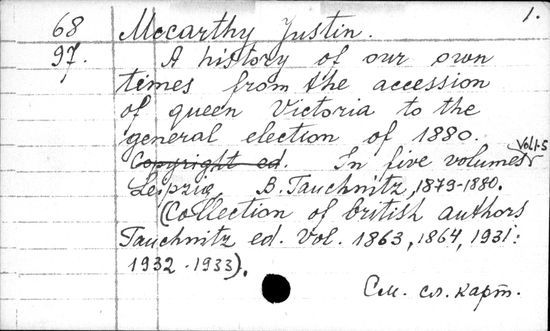 1.
68 Mccarthy Justin.
97. A history of our own
times from the accession
of queen Victoria to the
general election of 1880.
Copyright ed. In five volumes Vol 1-5
Leipzig, B. Tauchnitz, 1879-1880.
(Collection of british authors
Tauchnitz ed. Vol. 1863, 1864, 1931:
1932-1933).
См. сл. карт.